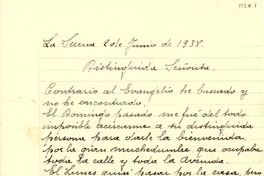 1124.1
La Serena 2 de Junio de 1938.
Distinguida Señorita.
Contrario al Evangelio he buscado y
no he encontrado!
El Domingo pasado me fué del todo
imposible acercarme a tu distinguida
persona para darle la bienvenida
por la gran muchedumbre que ocupaba
toda la calle y toda la Avenida.
El Lunes quise pasar por la casa, pero